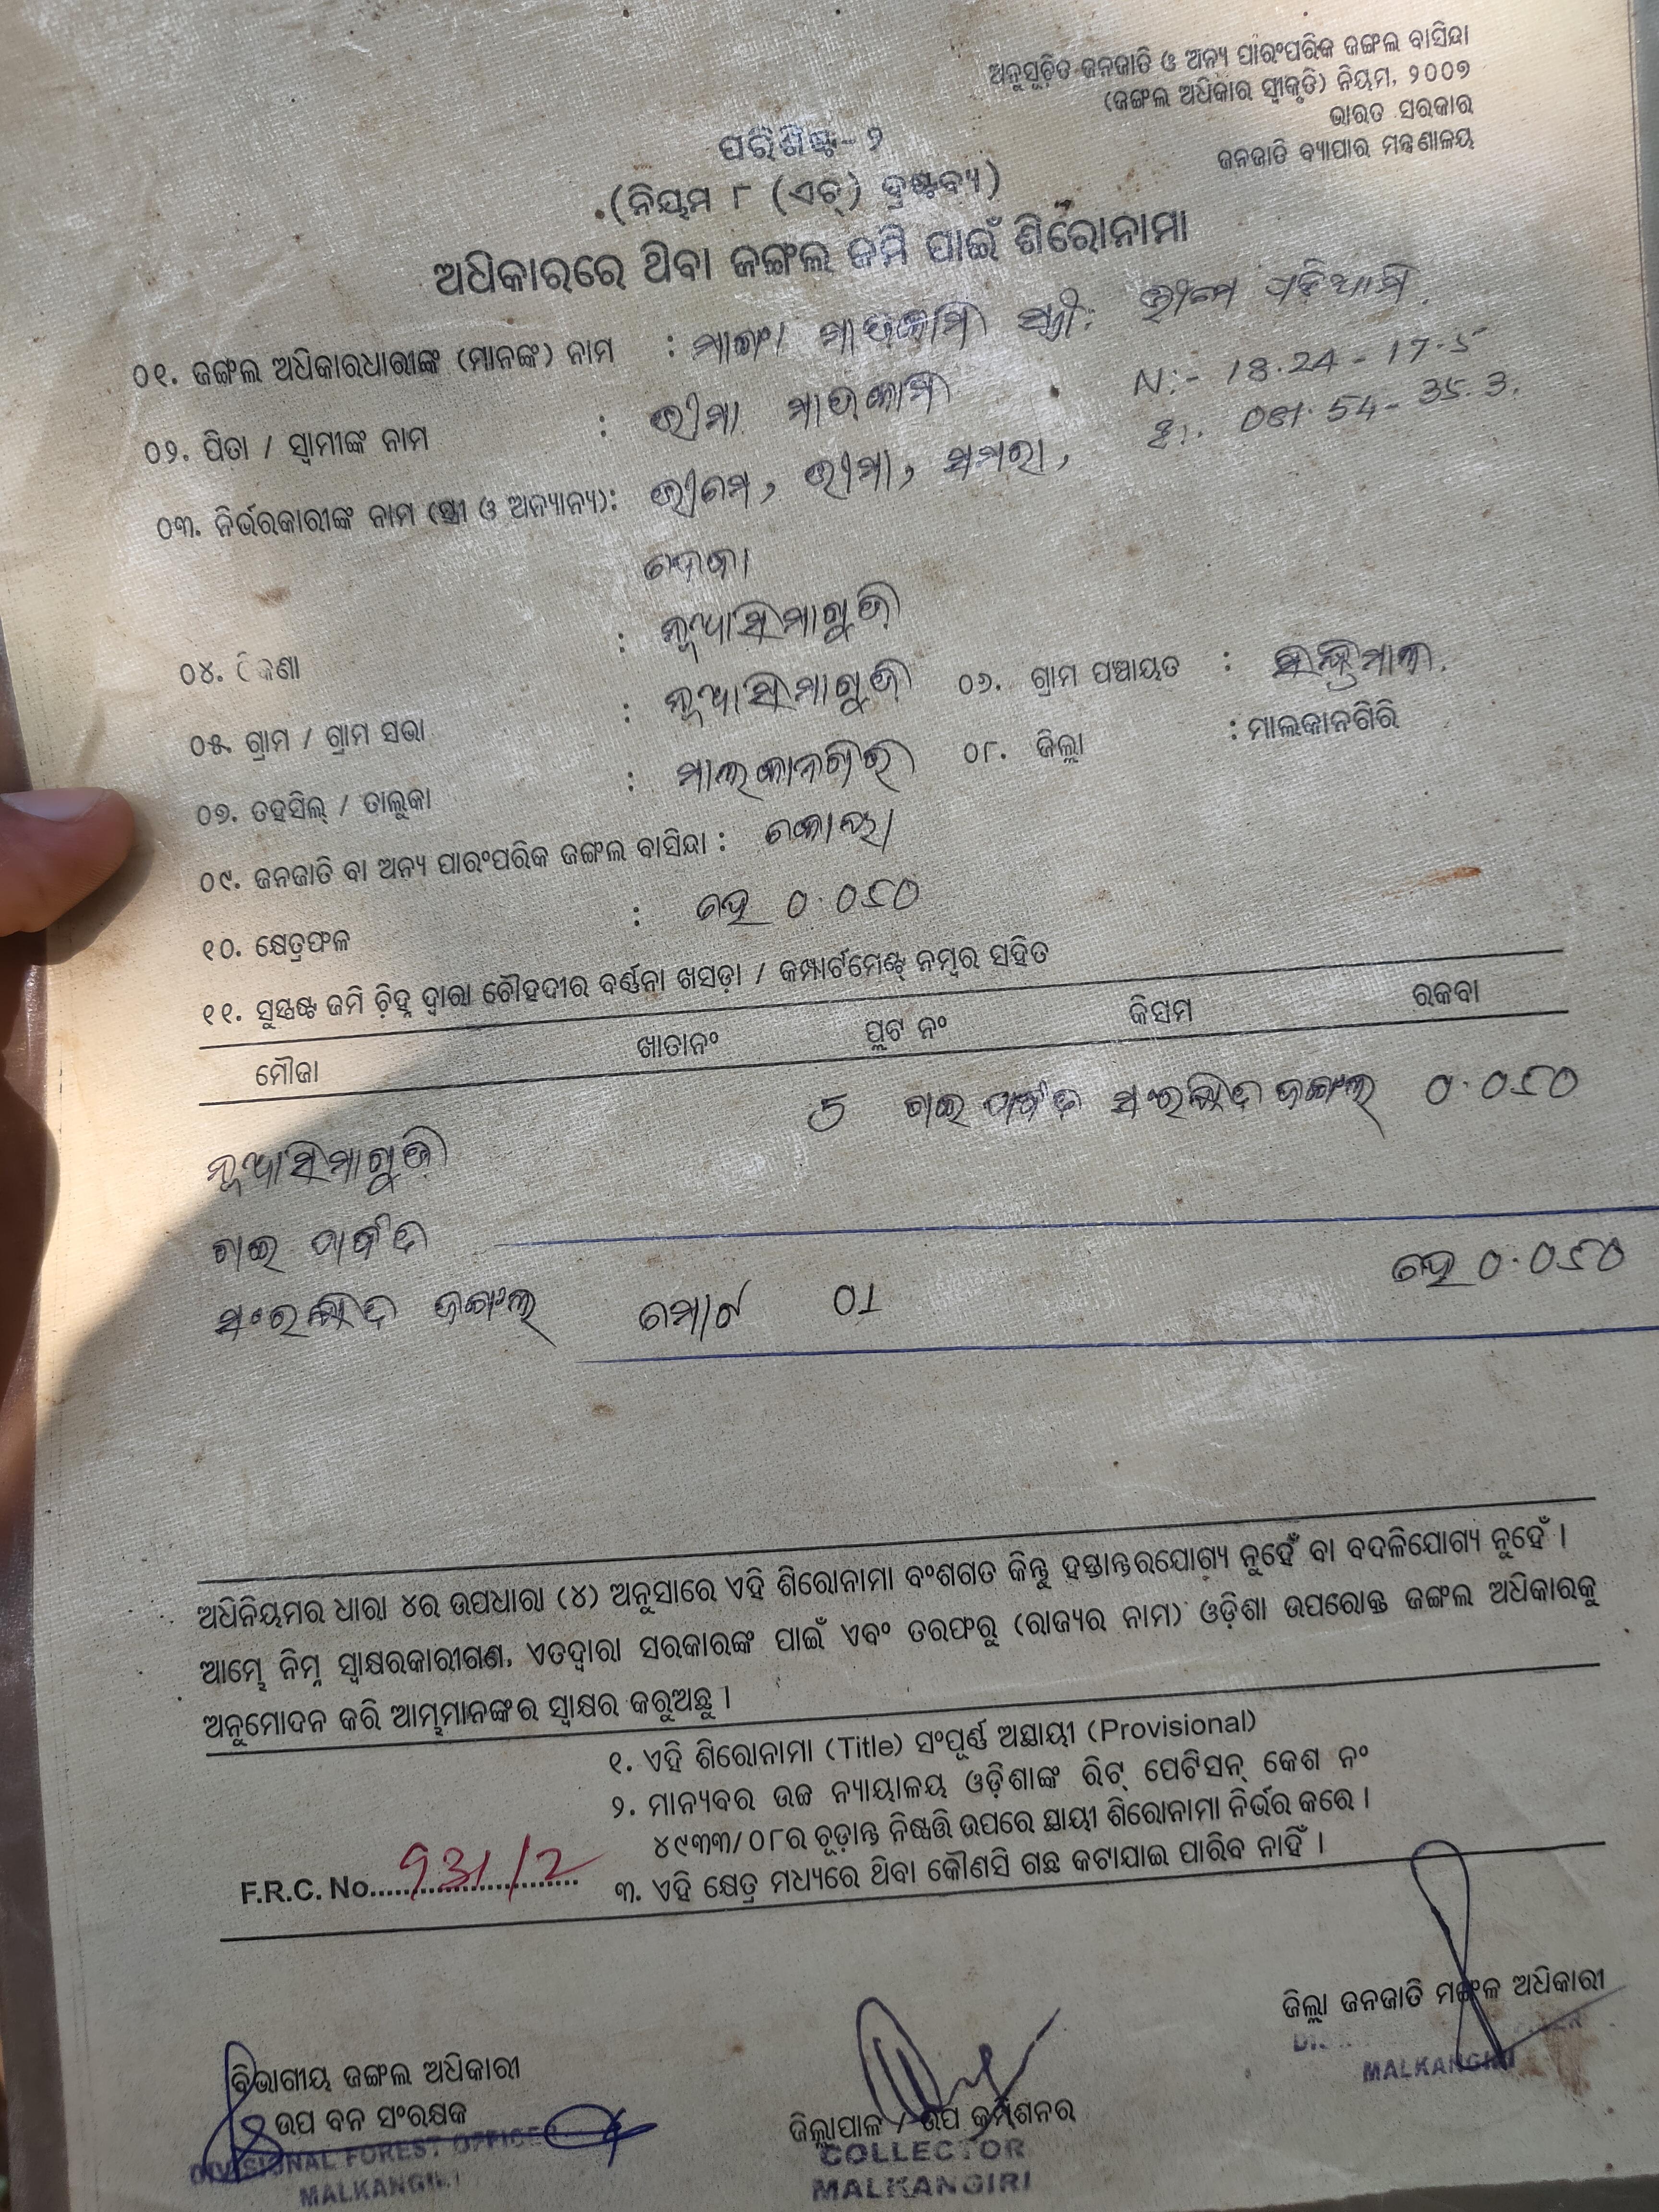 ଅନୁସୂଚିତ ଜନଜାତି ଓ ଅନ୍ୟ ପାରଂପରିକ ଜଙ୍ଗଲ ବାସିନ୍ଦା
(ଜଙ୍ଗଲ ଅଧିକାର ସ୍ୱୀକୃତି) ନିୟମ, ୨୦୦୭
ଭାରତ ସରକାର
ଜନଜାତି ବ୍ୟାପାର ମନ୍ତ୍ରଣାଳୟ
ପରିଶିଷ୍ଟ-୨
(ନିୟମ ୮ (ଏଚ୍) ଦ୍ରଷ୍ଟବ୍ୟ)
ଅଧିକାରରେ ଥିବା ଜଙ୍ଗଲ ଜମି ପାଇଁ ଶିରୋନାମା
୦୧. ଜଙ୍ଗଲ ଅଧିକାରଧାରୀଙ୍କ (ମାନଙ୍କ) ନାମ : ମାଡକାମି ସ୍ତ୍ରୀ:
୦୨. ପିତା / ସ୍ୱାମୀଙ୍କ ନାମ : ଭୀମା ମାଡକାମି N:- 18.24-17.5
୦୩. ନିର୍ଭରକାରୀଙ୍କ ନାମ (ସ୍ତ୍ରୀ ଓ ଅନ୍ୟାନ୍ୟ): ଭୀମେ, ଭୀମା, ସମରା, 081.54-35.3.
ଦେବା
୦୪. ଠିକଣା : ନୂଆସିମାଗୁଡ଼ି
୦୫. ଗ୍ରାମ / ଗ୍ରାମ ସଭା : ନୂଆସିମାଗୁଡ଼ି ୦୬. ଗ୍ରାମ ପଞ୍ଚାୟତ :
୦୭. ତହସିଲ୍ / ତାଲୁକା : ମାଲକାନଗିରି ୦୮. ଜିଲ୍ଲା : ମାଲକାନଗିରି
୦୯. ଜନଜାତି ବା ଅନ୍ୟ ପାରଂପରିକ ଜଙ୍ଗଲ ବାସିନ୍ଦା : କୋୟା
୧୦. କ୍ଷେତ୍ରଫଳ : ହେ ୦.୦୫୦
୧୧. ସୁସ୍ପଷ୍ଟ ଜମି ଚିହ୍ନ ଦ୍ୱାରା ଚୌହଦୀର ବର୍ଣ୍ଣନା ଖସଡ଼ା / କମ୍ପାର୍ଟମେଣ୍ଟ୍ ନମ୍ବର ସହିତ
ମୌଜା ଖାତାନଂ ପ୍ଲଟ ନଂ କିସମ ରକବା
ନୂଆସିମାଗୁଡ଼ି 5 ସଂରକ୍ଷିତ ଜଙ୍ଗଲ ୦.୦୫୦
ସଂରକ୍ଷିତ ଜଙ୍ଗଲ ମୋଟ 01 ହେ ୦.୦୫୦
ଅଧିନିୟମର ଧାରା ୪ର ଉପଧାରା (୪) ଅନୁସାରେ ଏହି ଶିରୋନାମା ବଂଶଗତ କିନ୍ତୁ ହସ୍ତାନ୍ତରଯୋଗ୍ୟ ନୁହେଁ ବା ବଦଳିଯୋଗ୍ୟ ନୁହେଁ ।
ଆମ୍ଭେ ନିମ୍ନ ସ୍ୱାକ୍ଷରକାରୀଗଣ, ଏତଦ୍ୱାରା ସରକାରଙ୍କ ପାଇଁ ଏବଂ ତରଫରୁ (ରାଜ୍ୟର ନାମ) ଓଡ଼ିଶା ଉପରୋକ୍ତ ଜଙ୍ଗଲ ଅଧିକାରକୁ
ଅନୁମୋଦନ କରି ଆମ୍ଭମାନଙ୍କର ସ୍ୱାକ୍ଷର କରୁଅଛୁ ।
୧. ଏହି ଶିରୋନାମା (Title) ସଂପୂର୍ଣ୍ଣ ଅସ୍ଥାୟୀ (Provisional)
୨. ମାନ୍ୟବର ଉଚ୍ଚ ନ୍ୟାୟାଳୟ ଓଡ଼ିଶାଙ୍କ ରିଟ୍ ପେଟିସନ୍ କେଶ ନଂ
୪୯୩୩/୦୮ର ଚୂଡ଼ାନ୍ତ ନିଷ୍ପତ୍ତି ଉପରେ ସ୍ଥାୟୀ ଶିରୋନାମା ନିର୍ଭର କରେ ।
F.R.C. No. 931/2
୩. ଏହି କ୍ଷେତ୍ର ମଧ୍ୟରେ ଥିବା କୌଣସି ଗଛ କଟାଯାଇ ପାରିବ ନାହିଁ ।
ଜିଲ୍ଲା ଜନଜାତି ମଙ୍ଗଳ ଅଧିକାରୀ
MALKANGIRI
ବିଭାଗୀୟ ଜଙ୍ଗଲ ଅଧିକାରୀ
ଉପ ବନ ସଂରକ୍ଷକ
DIVISIONAL FOREST OFFICER
MALKANGIRI
ଜିଲ୍ଲାପାଳ / ଉପ କମିଶନର
COLLECTOR
MALKANGIRI